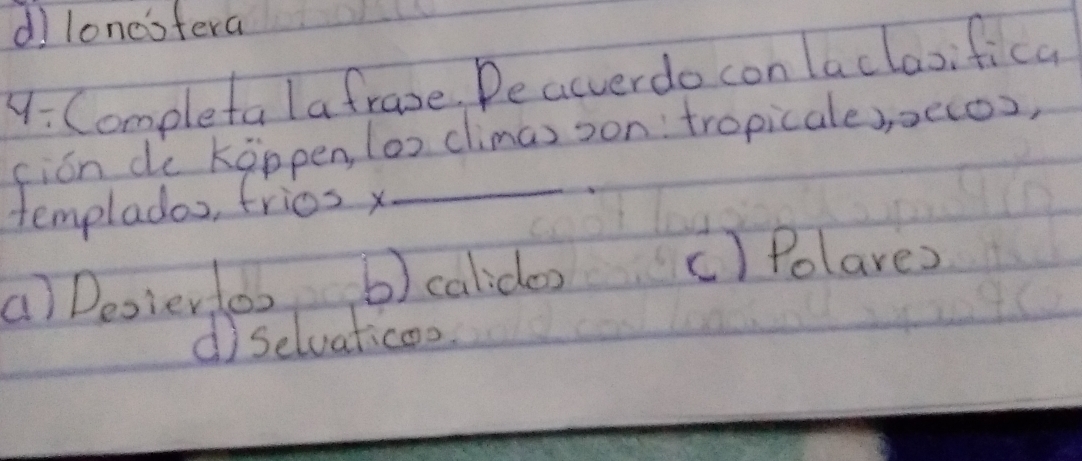 d) Ionosfera
4-. Completa la frase. De acuerdo con la clasifica
ción de Köppen, los climas son: tropicales, secos,
templados, frios y ______.
a) Desiertos b) calidos c) Polares
d) Selvaticos.